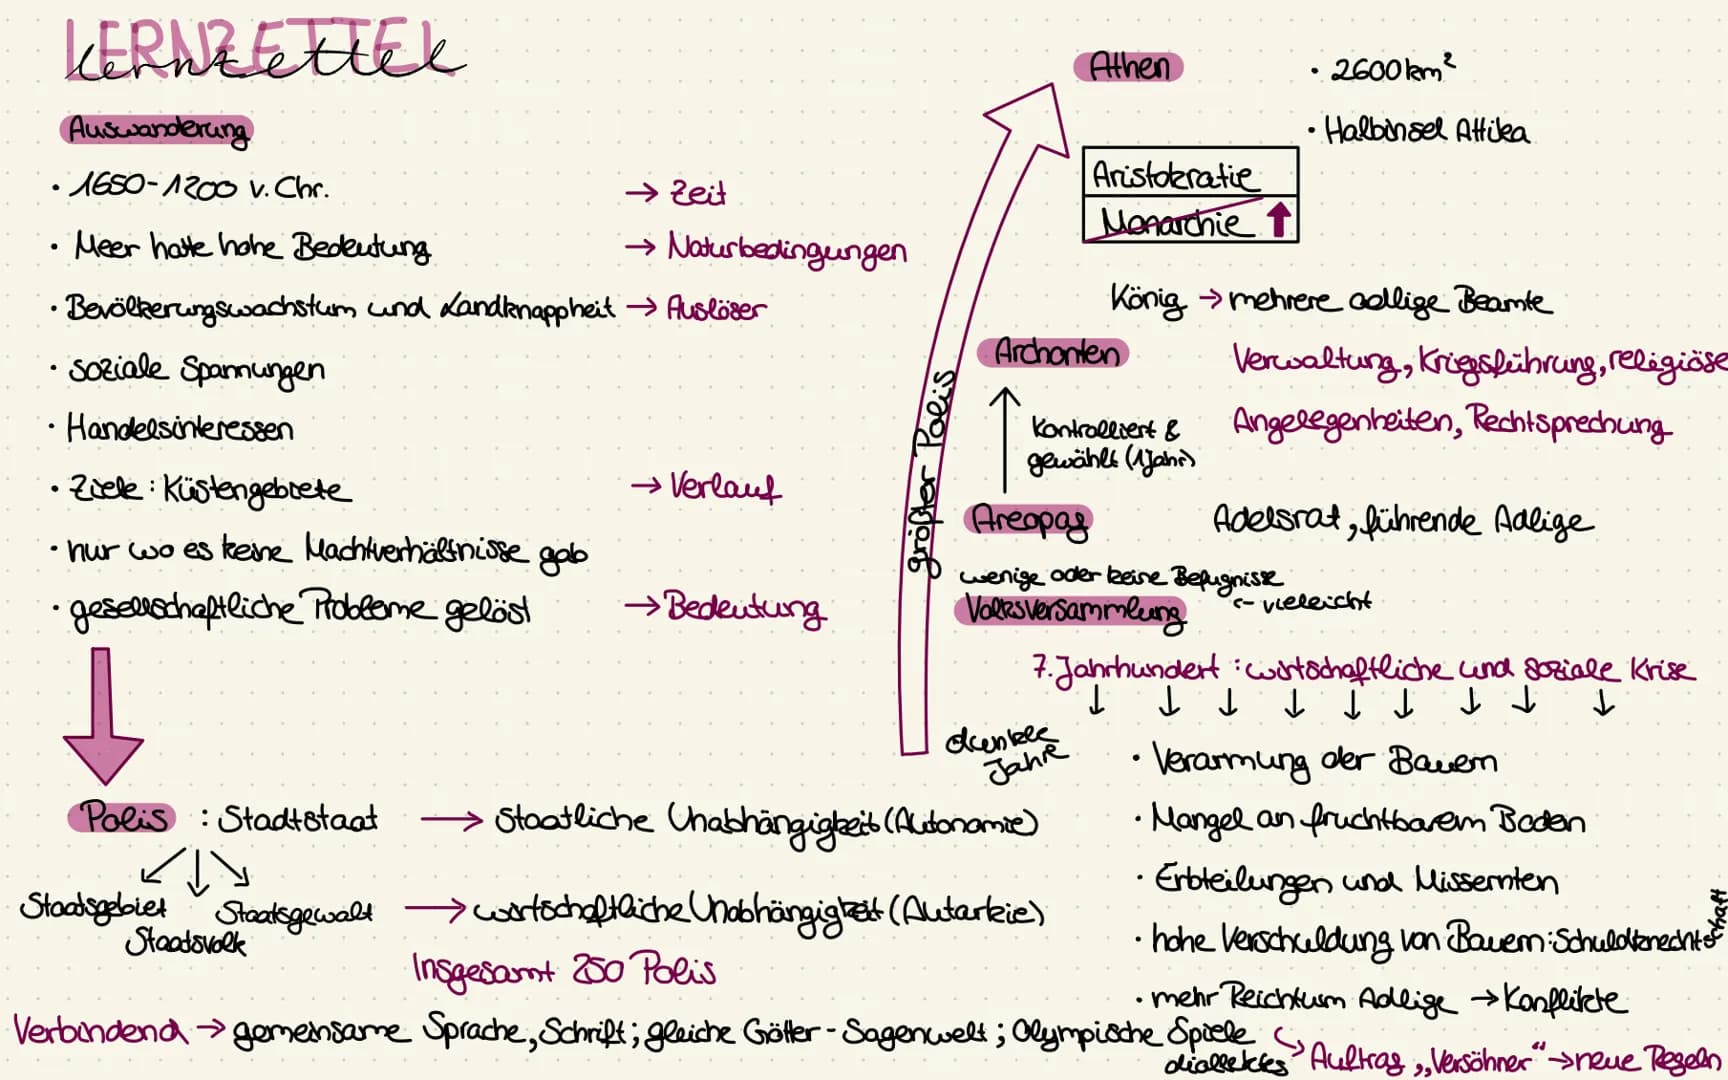 LERNZETTEL
Lernzettel
Auswanderung
· 1650-1200 v. Chr. → Zeit
· Meer hatte hohe Bedeutung → Naturbedingungen
· Bevölkerungswachstum und Landknappheit → Auslöser
· soziale Spannungen
· Handelsinteressen
· Ziele: Küstengebiete → Verlauf
· nur wo es keine Machtverhältnisse gab
· gesellschaftliche Probleme gelöst → Bedeutung
Polis : Stadtstaat → Staatliche Unabhängigkeit (Autonomie)
Staatsgebiet Staatsgewalt → wirtschaftliche Unabhängigkeit (Autarkie)
Staatsvolk
Insgesamt 250 Polis
Verbindend → gemeinsame Sprache, Schrift; gleiche Götter - Sagenwelt; Olympische Spiele
größter Polis
dunkle
Jahre
Athen
· 2600 km²
· Halbinsel Attika
Aristokratie
Monarchie
König → mehrere adlige Beamte
Archonten
Verwaltung, Kriegsführung, religiöse
Angelegenheiten, Rechtsprechung
kontrolliert &
gewählt (1 Jahr)
Areopag
Adelsrat, führende Adlige
wenige oder keine Befugnisse
Volksversammlung
<- vieleicht
7. Jahrhundert : wirtschaftliche und soziale Krise
· Verarmung der Bauern
· Mangel an fruchtbarem Boden
· Erbteilungen und Missernten
· hohe Verschuldung von Bauern: Schuldknechtschaft
· mehr Reichtum Adlige → Konflikte
Auftrag „Versöhner“ → neue Regeln